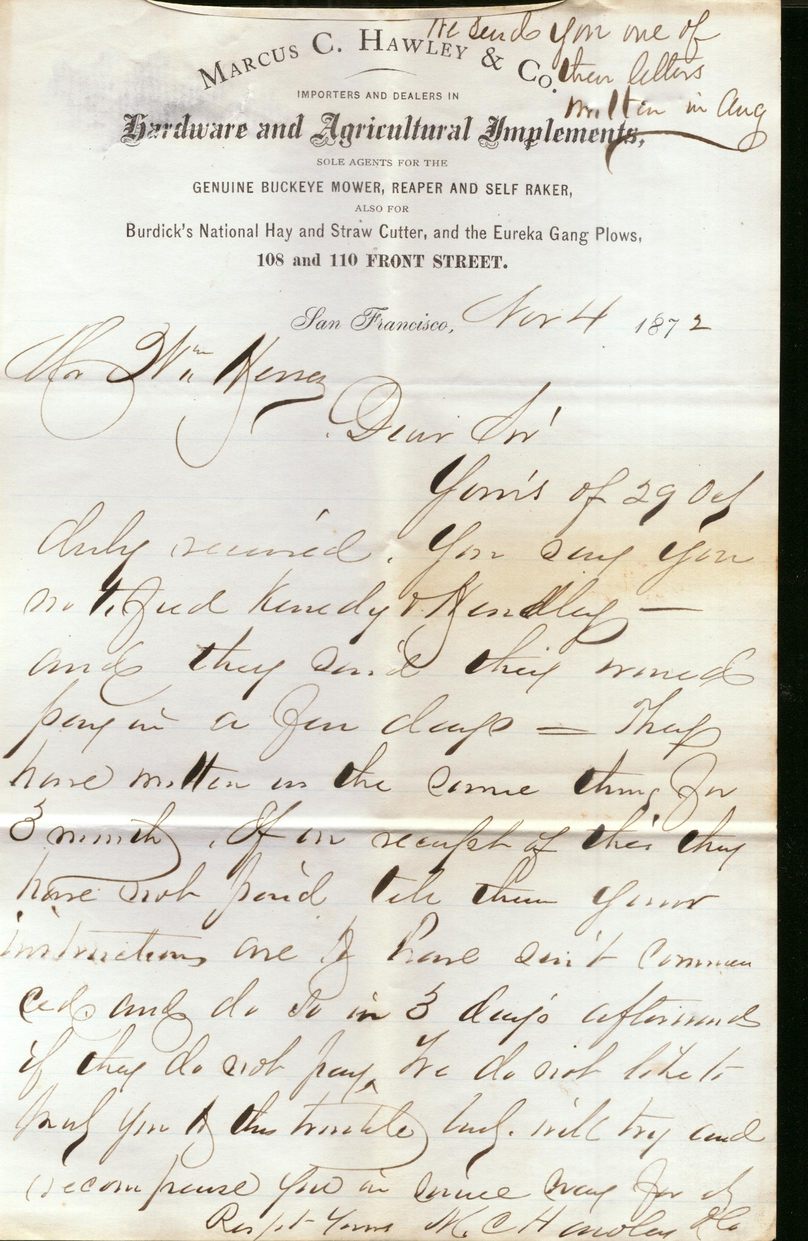 We send you one of
their letters
written in Aug
MARCUS C. HAWLEY & CO.
IMPORTERS AND DEALERS IN
Hardware and Agricultural Implements,
SOLE AGENTS FOR THE
GENUINE BUCKEYE MOWER, REAPER AND SELF RAKER,
ALSO FOR
Burdick's National Hay and Straw Cutter, and the Eureka Gang Plows,
108 and 110 FRONT STREET.
San Francisco, Nov 4 1872
Mr Wm
Dear Sir
Yours of 29 Oct
duly received. You say you
notified Kenedy & Hendley —
and they said they would
pay in a few days = They
have written us the same thing for
3 months. If on receipt of this they
have not paid tell them your
instructions are to have suit commen
ced and do so in 3 days afterwards
if they do not pay. We do not like to
put you to this trouble but will try and
recompense you in some way for it
Respt Yours M. C Hawley & Co